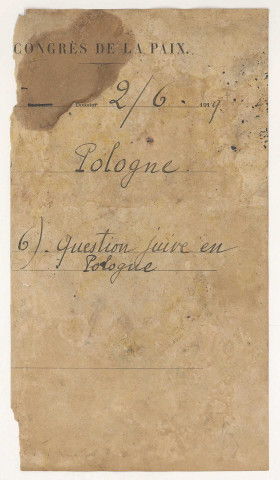 CONGRÈS DE LA PAIX.
Dossier 2/6. 1919.
Pologne.
6). Question juive en
Pologne